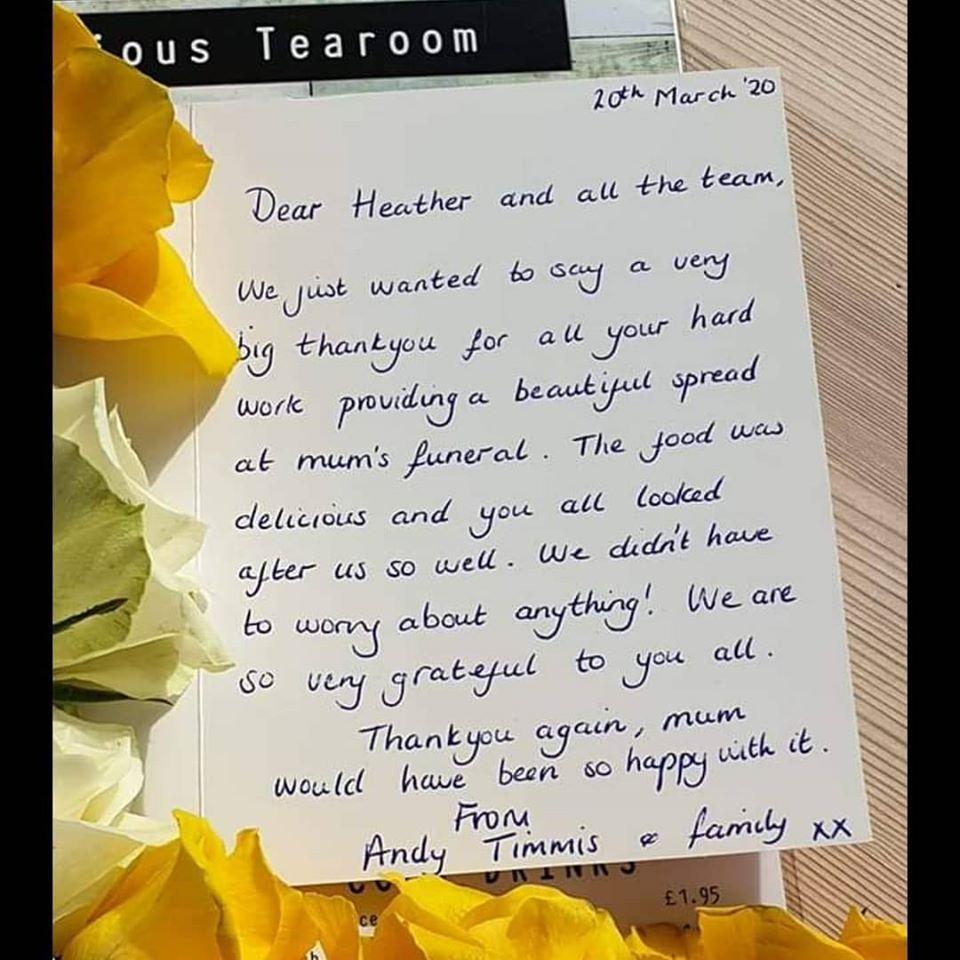 ous Tearoom
20th March '20
Dear Heather and all the team,
We just wanted to say a very
big thankyou for all your hard
work providing a beautiful spread
at mum's funeral. The food was
delicious and you all looked
after us so well. We didn't have
to worry about anything! We are
so very grateful to you all.
Thankyou again, mum
would have been so happy with it.
From
Andy Timmis & family xx
DRINKS
£1.95
ce